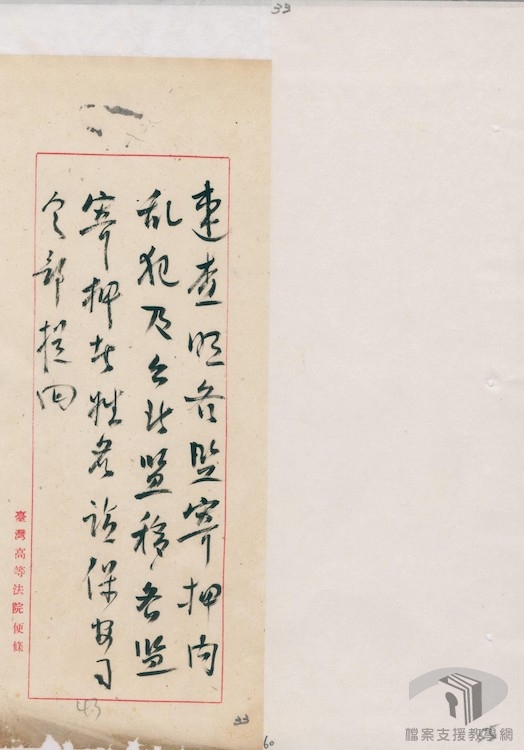 33
速查明各監寄押內
乱犯及台北監移各监
寄押者姓名請保安司
令部提回
臺灣高等法院便條
43
33
60
檔案支援教學網